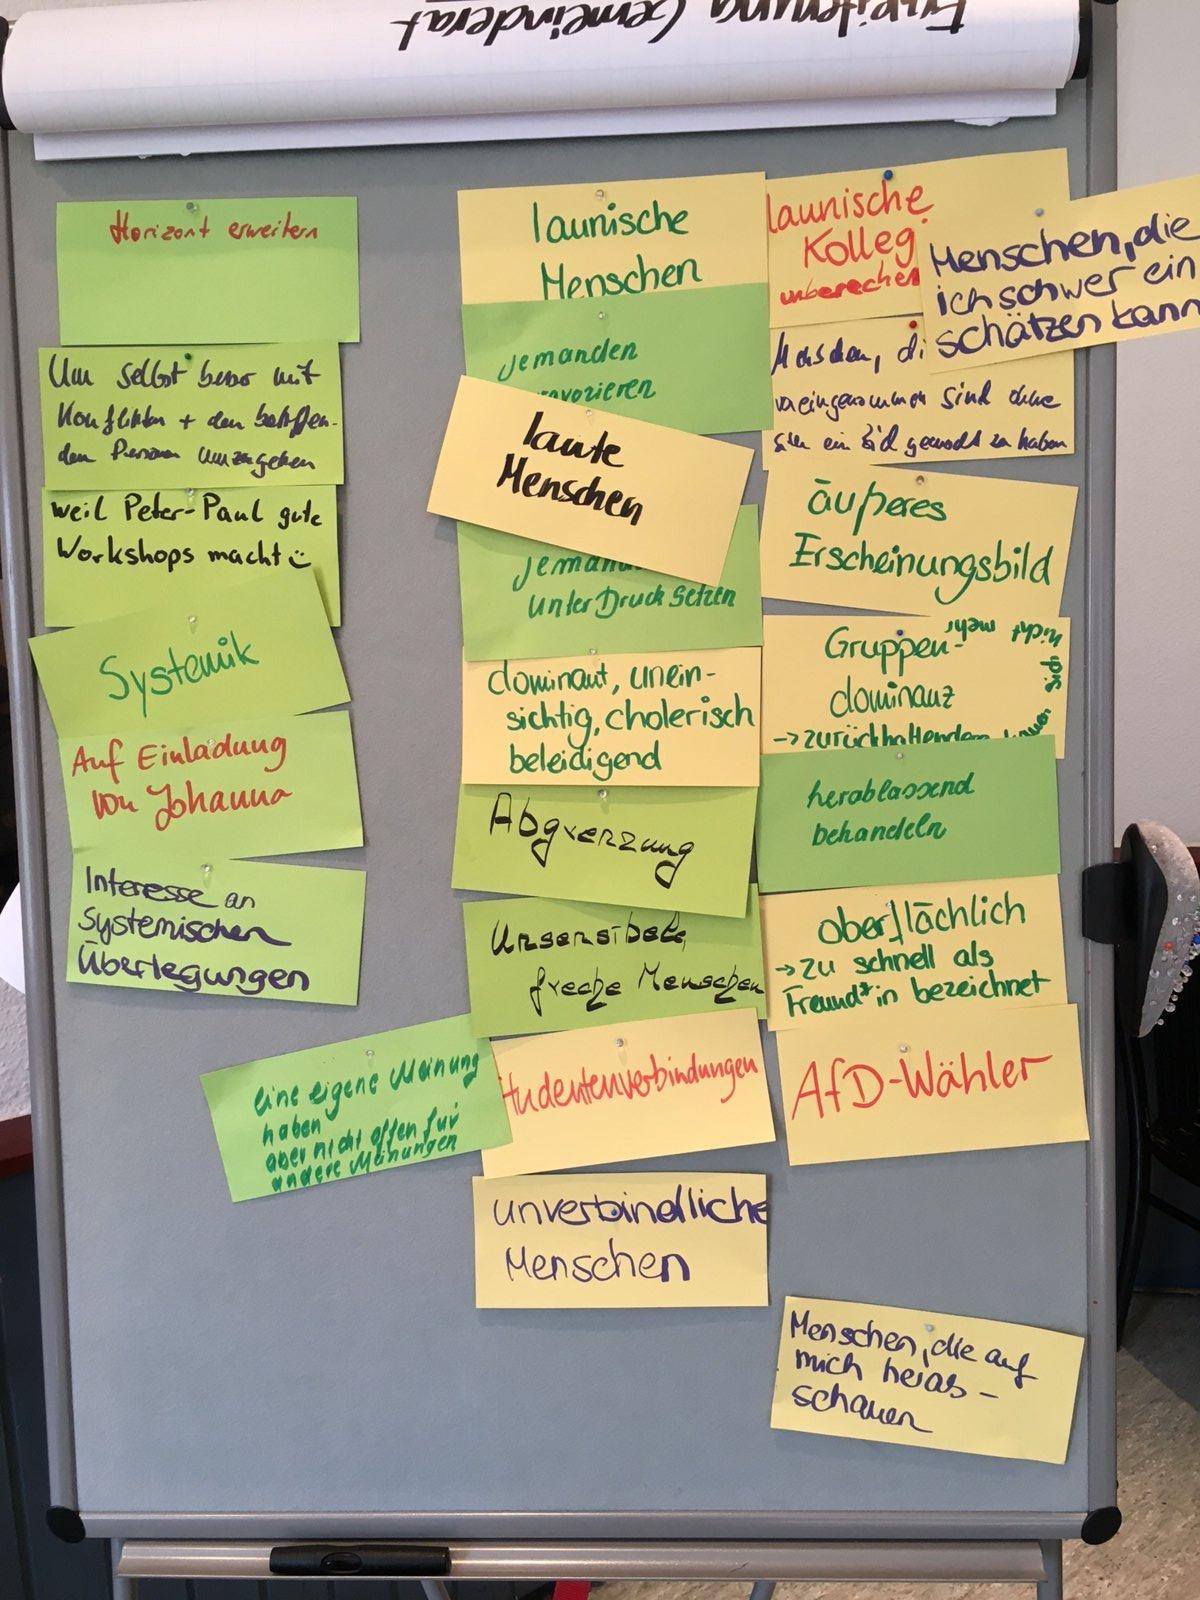 Erweiterung Gemeinderat
Horizont erweitern
Um selbst besser mit
Konflikten + den betreffen-
den Personen umzugehen
weil Peter-Paul gute
Workshops macht
Systemik
Auf Einladung
von Johanna
Interesse an
Systemischen
Überlegungen
eine eigene Meinung
haben
aber nicht offen für
andere Meinungen
launische
Menschen
jemanden
provozieren
laute
Menschen
unter Druck setzen
dominant, unein-
sichtig, cholerisch
beleidigend
Abgrenzung
Unsensibele,
freche Menschen
Studentenverbindungen
unverbindliche
Menschen
launische
Kolleg
unberechen
Menschen, die
ich schwer ein
schätzen kann
Menschen, di
voreingenommen sind ohne
sich ein Bild gemacht zu haben
äußeres
Erscheinungsbild
Gruppen-
dominanz
→ zurückhaltende
sich
nicht mehr
herablassend
behandeln
oberflächlich
→ zu schnell als
Freund*in bezeichnet
AfD-Wähler
Menschen, die auf
mich herab-
schauen